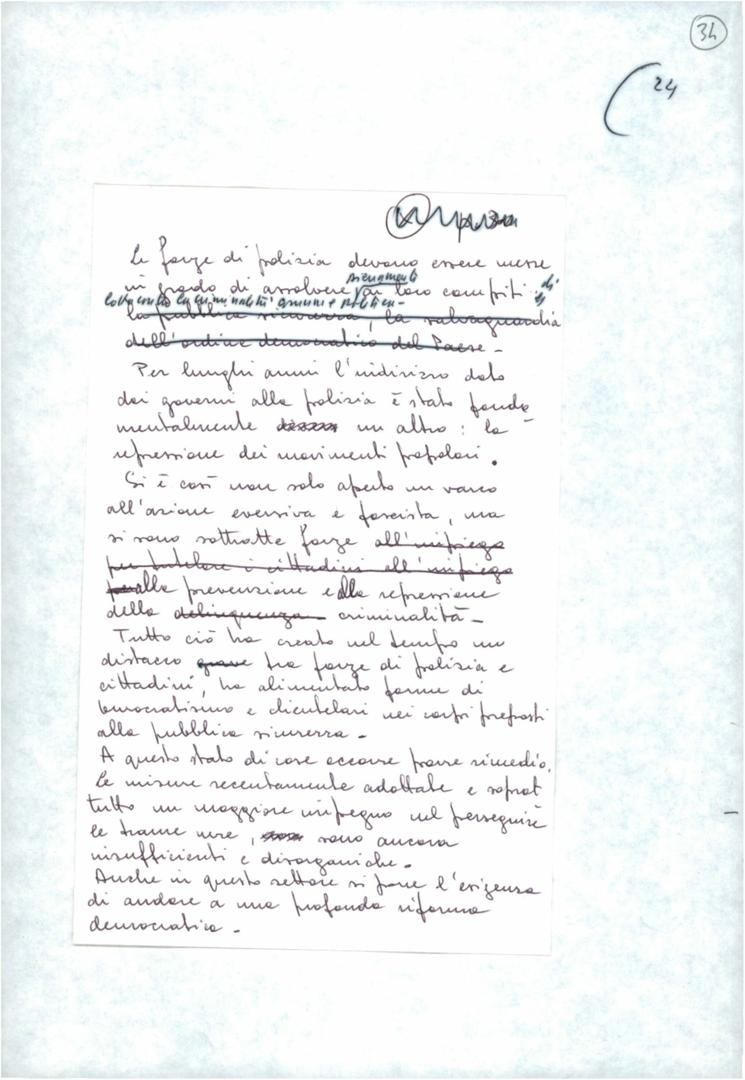 34
24
Le forze di polizia devono essere messe
pienamente
in grado di assolvere ai loro compiti di
lotta contro la criminalità comune e politica -
la pubblica sicurezza, la salvaguardia
dell'ordine democratico del Paese -
Per lunghi anni l'indirizzo dato
dai governi alla polizia è stato fonda
mentalmente un altro : la
repressione dei movimenti popolari.
Si è così non solo aperto un varco
all'azione eversiva e fascista, ma
si sono sottratte forze all'impiego
per tutelare i cittadini all'impiego
alla prevenzione e alla repressione
della delinquenza criminalità -
Tutto ciò ha creato nel tempo un
distacco grave tra forze di polizia e
cittadini, ha alimentato forme di
burocratismo e clientelari nei corpi preposti
alla pubblica sicurezza -
A questo stato di cose occorre porre rimedio.
Le misure recentemente adottate e soprat
tutto un maggiore impegno nel perseguire
le trame nere, sono ancora
insufficienti e disorganiche -
Anche in questo settore si pone l'esigenza
di andare a una profonda riforma
democratica -